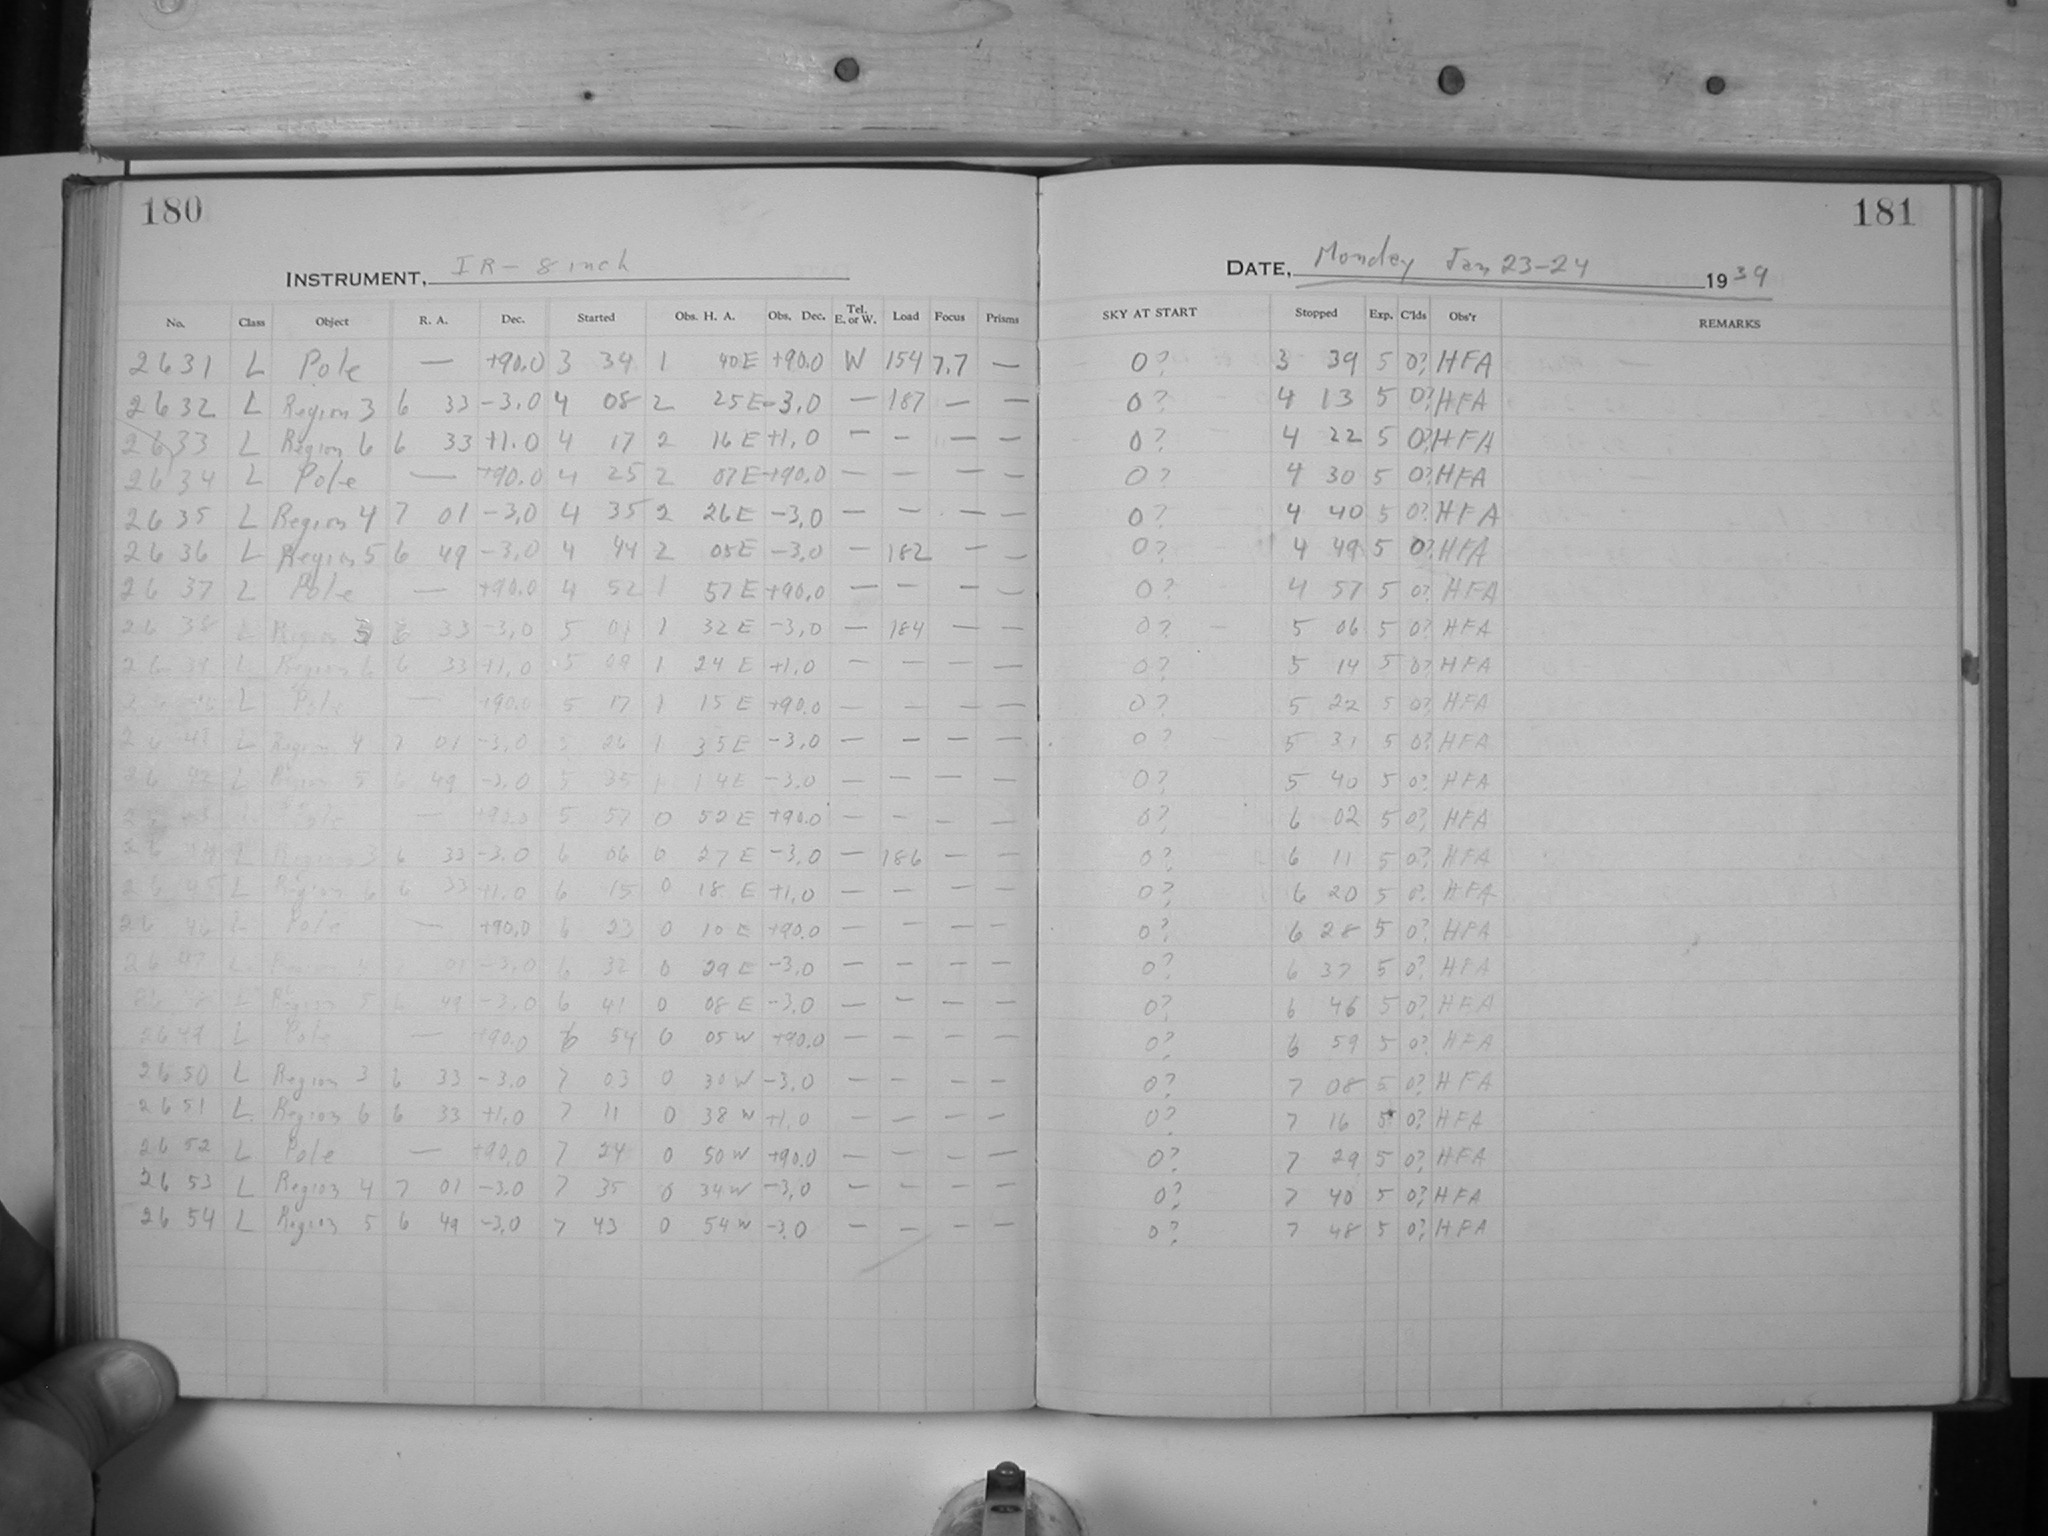 180
INSTRUMENT, IR - 8 inch
No. Class Object R. A. Dec. Started Obs. H. A. Obs. Dec. Tel. E. or W. Load Focus Prisms
2631 L Pole — +90.0 3 34 1 40 E +90.0 W 154 7.7 —
2632 L Region 3 6 33 -3.0 4 08 2 25 E -3.0 — 187 — —
2633 L Region 6 6 33 +1.0 4 17 2 16 E +1.0 — — — —
2634 L Pole — +90.0 4 25 2 07 E +90.0 — — — —
2635 L Region 4 7 01 -3.0 4 35 2 26 E -3.0 — — — —
2636 L Region 5 6 49 -3.0 4 44 2 05 E -3.0 — 182 — —
2637 L Pole — +90.0 4 52 1 57 E +90.0 — — — —
2638 L Region 3 6 33 -3.0 5 01 1 32 E -3.0 — 184 — —
2639 L Region 6 6 33 +1.0 5 09 1 24 E +1.0 — — — —
2640 L Pole — +90.0 5 17 1 15 E +90.0 — — — —
2641 L Region 4 7 01 -3.0 5 26 1 35 E -3.0 — — — —
2642 L Region 5 6 49 -3.0 5 35 1 14 E -3.0 — — — —
2643 L Pole — +90.0 5 57 0 52 E +90.0 — — — —
2644 L Region 3 6 33 -3.0 6 06 0 27 E -3.0 — 186 — —
2645 L Region 6 6 33 +1.0 6 15 0 18 E +1.0 — — — —
2646 L Pole — +90.0 6 23 0 10 E +90.0 — — — —
2647 L Region 4 7 01 -3.0 6 32 0 29 E -3.0 — — — —
2648 L Region 5 6 49 -3.0 6 41 0 08 E -3.0 — — — —
2649 L Pole — +90.0 6 54 0 05 W +90.0 — — — —
2650 L Region 3 6 33 -3.0 7 03 0 30 W -3.0 — — — —
2651 L Region 6 6 33 +1.0 7 11 0 38 W +1.0 — — — —
2652 L Pole — +90.0 7 24 0 50 W +90.0 — — — —
2653 L Region 4 7 01 -3.0 7 35 0 34 W -3.0 — — — —
2654 L Region 5 6 49 -3.0 7 43 0 54 W -3.0 — — — —
181
DATE, Monday Jan 23-24 1939
SKY AT START Stopped Exp. C'lds Obs'r REMARKS
0? 3 39 5 0? HFA
0? 4 13 5 0? HFA
0? 4 22 5 0? HFA
0? 4 30 5 0? HFA
0? 4 40 5 0? HFA
0? 4 49 5 0? HFA
0? 4 57 5 0? HFA
0? 5 06 5 0? HFA
0? 5 14 5 0? HFA
0? 5 22 5 0? HFA
0? 5 31 5 0? HFA
0? 5 40 5 0? HFA
0? 6 02 5 0? HFA
0? 6 11 5 0? HFA
0? 6 20 5 0? HFA
0? 6 28 5 0? HFA
0? 6 37 5 0? HFA
0? 6 46 5 0? HFA
0? 6 59 5 0? HFA
0? 7 08 5 0? HFA
0? 7 16 5 0? HFA
0? 7 29 5 0? HFA
0? 7 40 5 0? HFA
0? 7 48 5 0? HFA